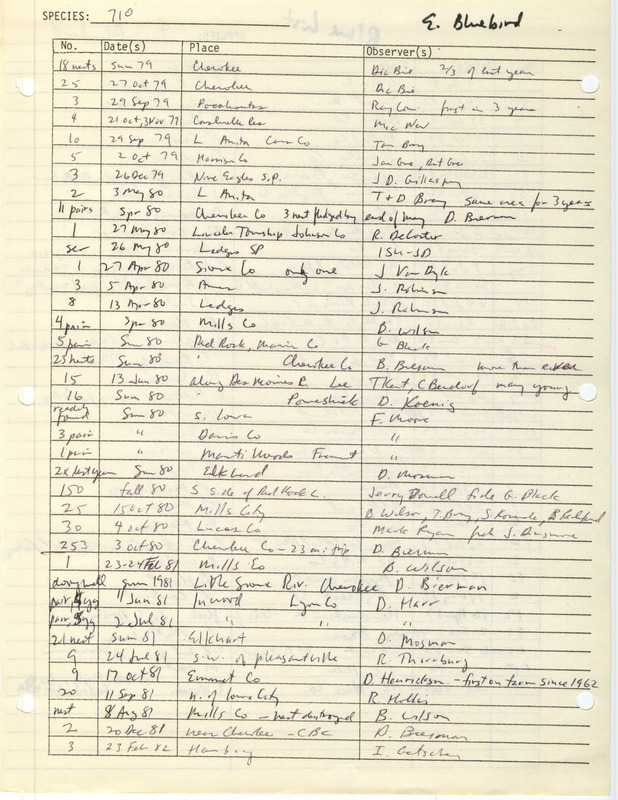 SPECIES: 710 E. Bluebird
No. Date(s) Place Observer(s)
18 nests Sum 79 Cherokee Dic Bie 2/3 of last year
25 27 Oct 79 Cherokee Dic Bie
3 29 Sep 79 Pocahontas Ray first in 3 years
4 21 Oct, 3 Nov 79
10 29 Sep 79 L Anita Cass Co Tom Bray
5 2 Oct 79 Harrison Co
3 26 Dec 79 Nine Eagles S.P. J D. Gillaspey
2 3 May 80 L Anita T + D Bray same area for 3 years
11 pairs Spr 80 Cherokee Co 3 nest fledged by end of May D. Bierman
1 27 May 80 Lincoln Township Johnson Co R. DeCoster
sev 26 May 80 Ledges SP
1 27 Apr 80 Sioux Co only one J Van Dyk
3 5 Apr 80 Ames J. Robinson
8 13 Apr 80 Ledges J. Robinson
4 pair Spr 80 Mills Co B. Wilson
5 pair Sum 80 Red Rock, Marion Co G Black
25 nests Sum 80 " Cherokee Co B. Bierman more than ever
15 13 Jun 80 along Des Moines R. Lee T Kent, C Bendorf many young
16 Sum 80 Poweshiek D. Koenig
readily found Sum 80 S. Iowa F. Moore
3 pair " Davis Co "
1 pair " "
2x last year Sum 80 Elk Land D. Mosman
150 fall 80 S side of Red Rock L. Jerry Dowell fide G. Black
25 15 Oct 80 Mills City B Wilson, T. Bray, S Kovanda, B Padelford
30 4 Oct 80 Lucas Co Mark Ryan fide J. Dinsmore
253 3 Oct 80 Cherokee Co - 23 mi trip D. Bierman
1 23-24 Feb 81 Mills Co B. Wilson
doing well Sum 1981 Little Sioux Riv. Cherokee D. Bierman
pair, 5 egg 11 Jun 81 Inwood Lyon Co D. Harr
pair, 5 egg 2 Jul 81 " " "
21 nest Sum 81 Elkhart D. Mosman
9 24 Jul 81 s.w. of Pleasantville R. Thornburg
9 17 Oct 81 Emmet Co D. Henrickson - first on farm since 1962
20 11 Sep 81 n. of Iowa City R. Hollis
nest 8 Aug 81 Mills Co - nest destroyed B. Wilson
2 20 Dec 81 near Cherokee - CBC D. Bierman
3 23 Feb 82 Hamburg I. Getscher